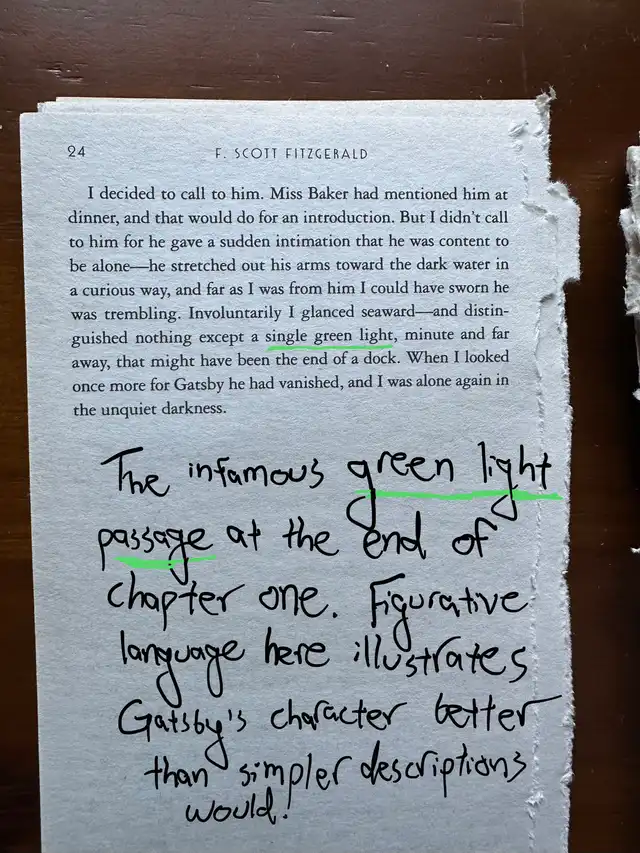 24
F. SCOTT FITZGERALD
I decided to call to him. Miss Baker had mentioned him at
dinner, and that would do for an introduction. But I didn't call
to him for he gave a sudden intimation that he was content to
be alone—he stretched out his arms toward the dark water in
a curious way, and far as I was from him I could have sworn he
was trembling. Involuntarily I glanced seaward—and distin-
guished nothing except a single green light, minute and far
away, that might have been the end of a dock. When I looked
once more for Gatsby he had vanished, and I was alone again in
the unquiet darkness.
The infamous green light
passage at the end of
chapter one. Figurative
language here illustrates
Gatsby's character better
than simpler descriptions
would!